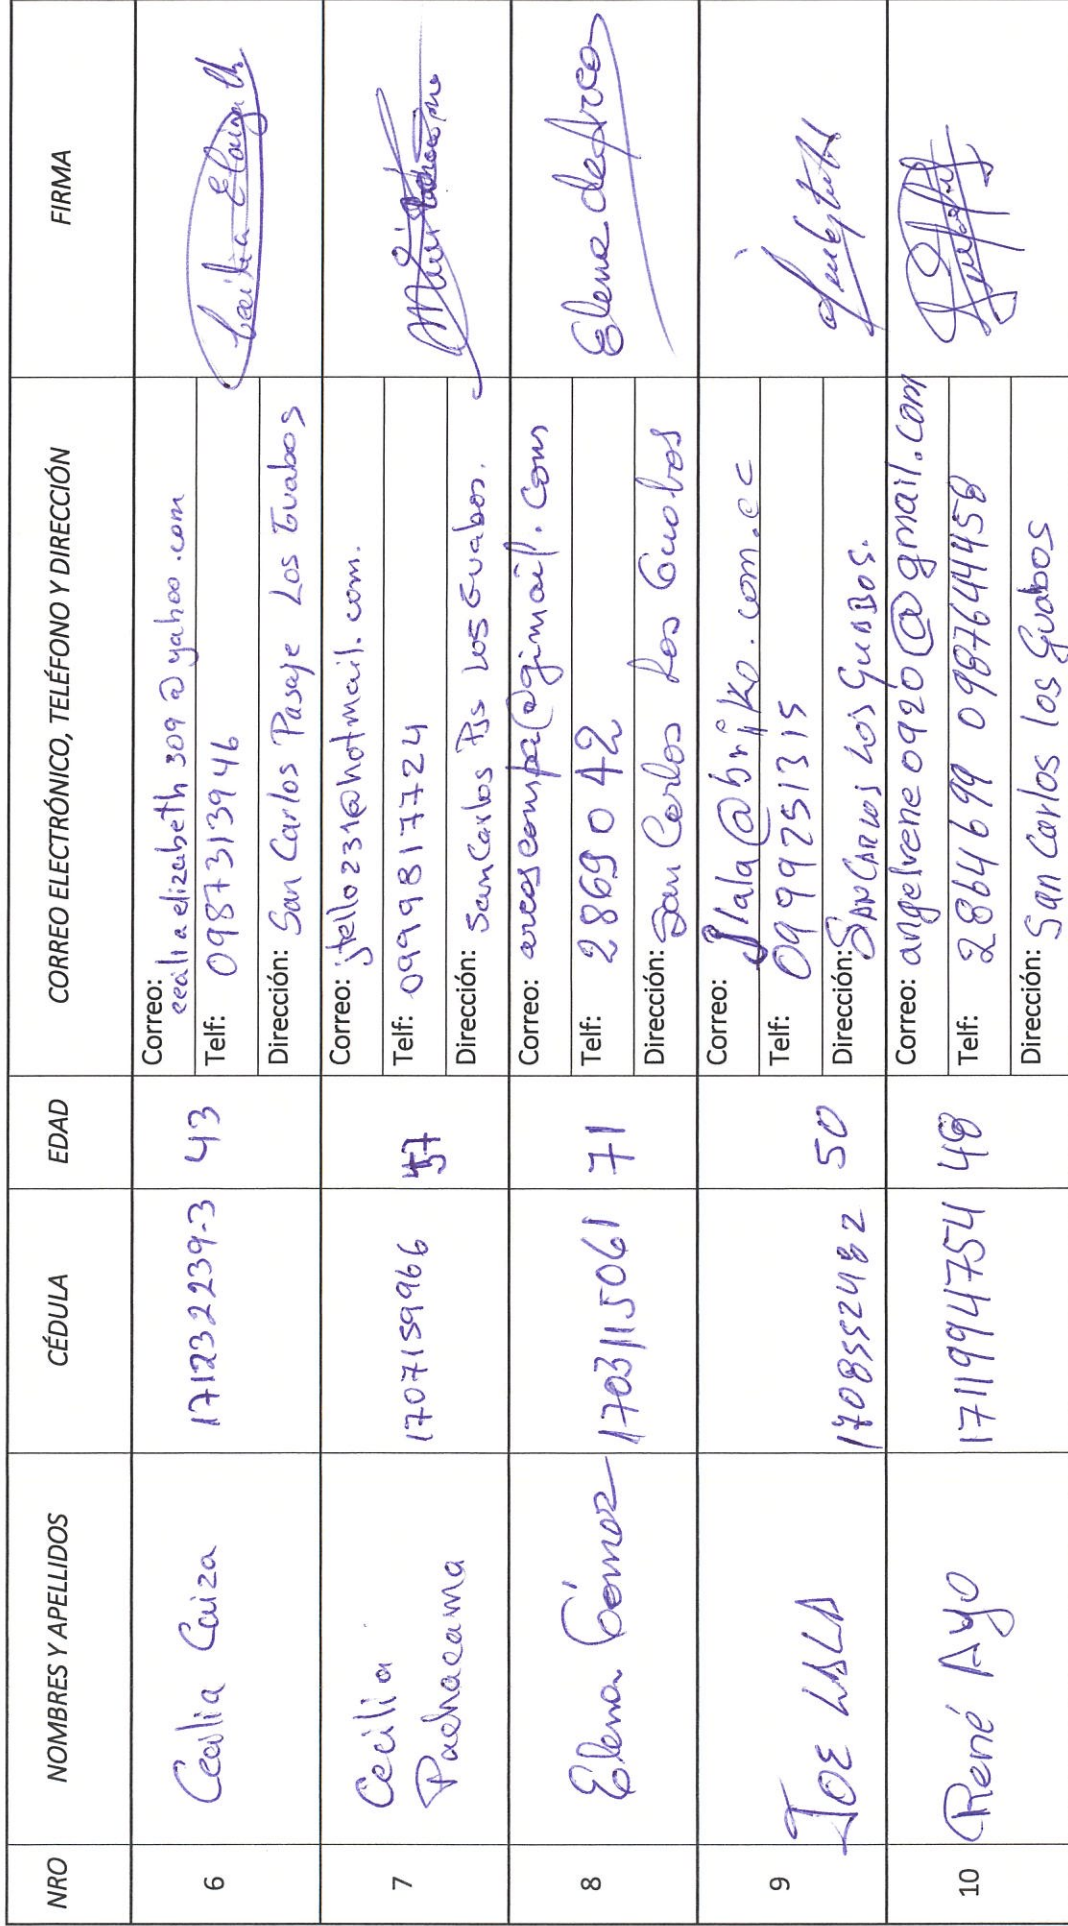 NRO NOMBRES Y APELLIDOS CÉDULA EDAD CORREO ELECTRÓNICO, TELÉFONO Y DIRECCIÓN FIRMA
6 Cecilia Caiza 171232239-3 43
Correo: ceciliaelizabeth309@yahoo.com
Telf: 0987313946
Dirección: San Carlos Pasaje Los Guabos
7 Cecilia
Pachacama 1707159966 57
Correo: jtello231@hotmail.com.
Telf: 0999817724
Dirección: San Carlos Pjs Los Guabos.
8 Elena Gómez 1703115061 71
Correo: arcescompa@gimail.com
Telf: 2869042
Dirección: San Carlos Los Guabos
Elena de Arcos
9 JOE LALA 1708552482 50
Correo: jlala@briko.com.ec
Telf: 0999251315
Dirección: SAN CARLOS LOS GUABOS.
10 René Ayo 1711994754 48
Correo: angelrene0920@gmail.com
Telf: 2864699 0987644458
Dirección: San Carlos los Guabos